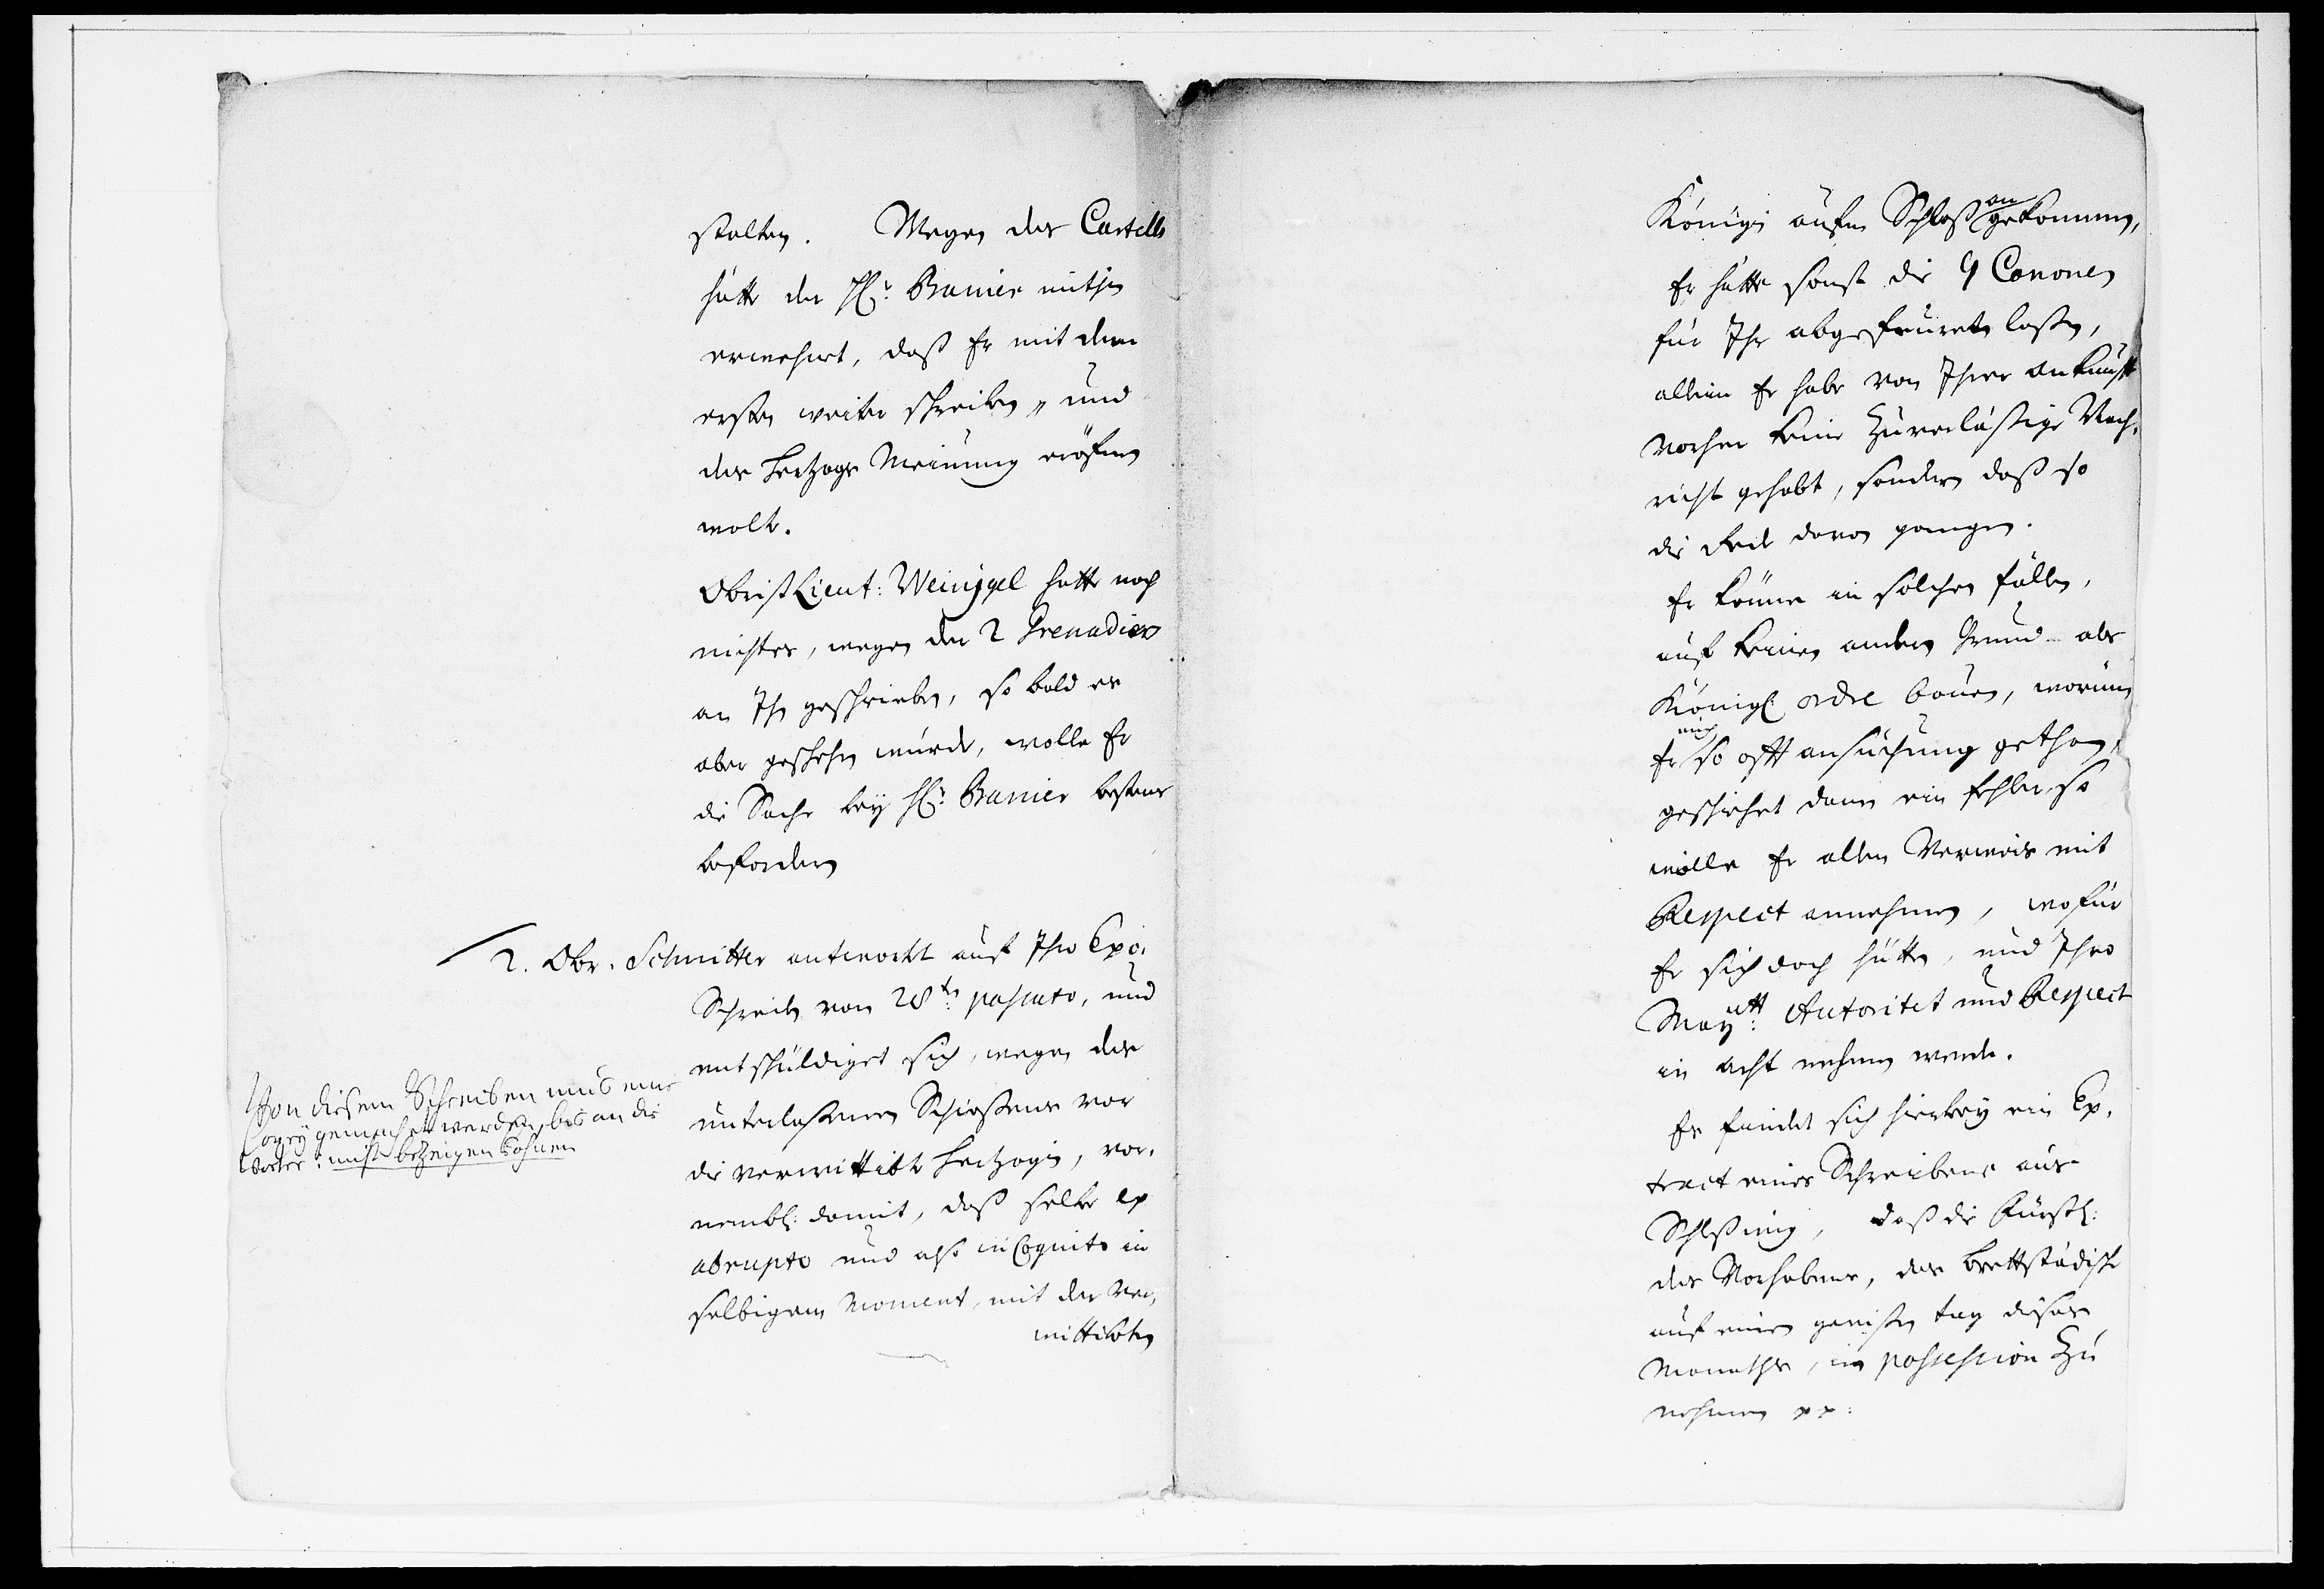 stalten. Wegen des Cartells
hätte der H^r: Banier mit ihm
erwehnt, daß Er mit dem
ersten weiter schreiben, und
des Hertzogs Meinung eröfnen
wolte.
Obrist Lieut: Weinigel hatte noch
nichtes, wegen der 2 Grenadiers
an Ihn geschrieben, so bald es
aber geschehen würde, wolle Er
die Sache bey H^r: Banier bestens
befordern
2. Obr. Schnitter antwortet auf Ihro Exc:
Schreiben vom 28^ten: passato, und
entschuldiget sich, wegen des
unterlaßenen Schießens vor
die verwittibte Hertzogin, vor-
nembl: damit, daß selbe ex
abrupto und also in Cognito in
selbigem Moment, mit der ver-
wittibten
Von diesem Schreiben mus eine
Copey gemachet werden, bis an die
Wörter: nicht bezeigen können
Königin aufm Schloß angekommen,
Er hätte sonst die 9 Canonen
für Ihr abgefeuret laßen,
allein Er habe von Ihrer ankunfft
vorher keine zuverläßige Nach-
richt gehabt, sondern daß so
die Rede davon gangen.
Er könne in solchen fällen,
auf keinen andern Grund als
Königl: ordre bauen, worum
Er auch so offt ansuchung gethan,
geschiehet dann ein fehler, so
wolle Er allen Verweis mit
Respect annehmen, wofür
Er sich doch hütten, und Ihro
May^tt: Autoritet und Respect
in acht nehmen werde.
Es findet sich hierbey ein Ex-
tract eines Schreibens aus
Schleßwig, daß die Fürstl:
des Vorhabens, das
auf einen gewißen tag dieses
Monathes, in possession zu
nehmen pp: